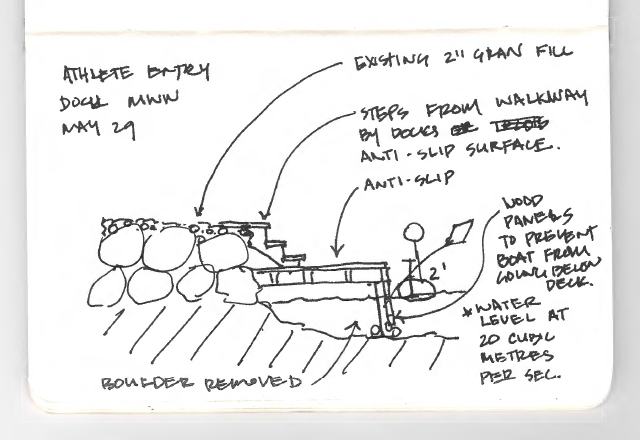 ATHLETE ENTRY
DOCK MWN
MAY 29
EXISTING 2" GRAN FILL
STEPS FROM WALKWAY
BY DOCKS
ANTI-SLIP SURFACE.
ANTI-SLIP
WOOD
PANELS
TO PREVENT
BOAT FROM
GOING BELOW
DECK.
2'
*WATER
LEVEL AT
20 CUBIC
METRES
PER SEC.
BOULDER REMOVED